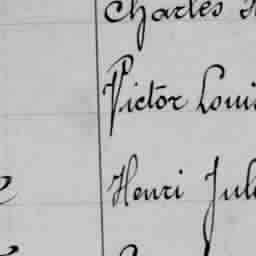 Charles
Victor Loui
Henri Jul